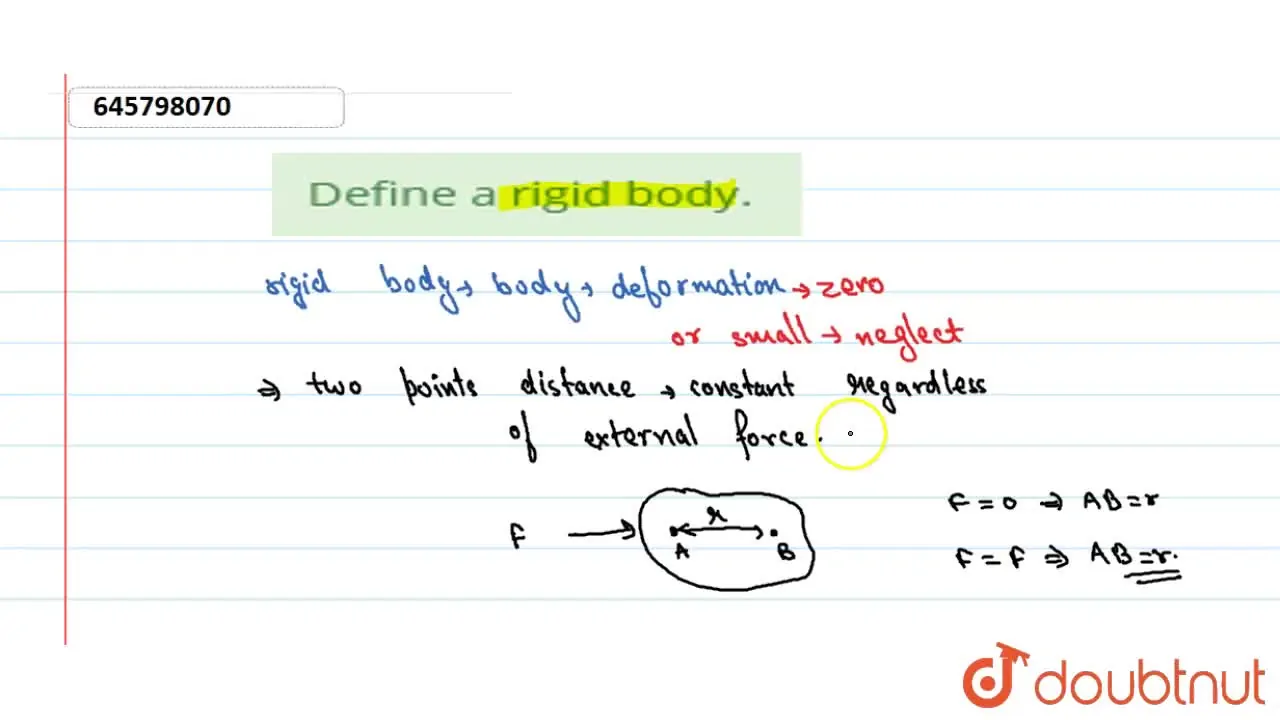 645798070
Define a rigid body.
rigid body → body → deformation → zero
or small → neglect
⇒ two points distance → constant regardless
of external force.
F → A r B
F = 0 ⇒ AB = r
F = F ⇒ AB = r.
doubtnut